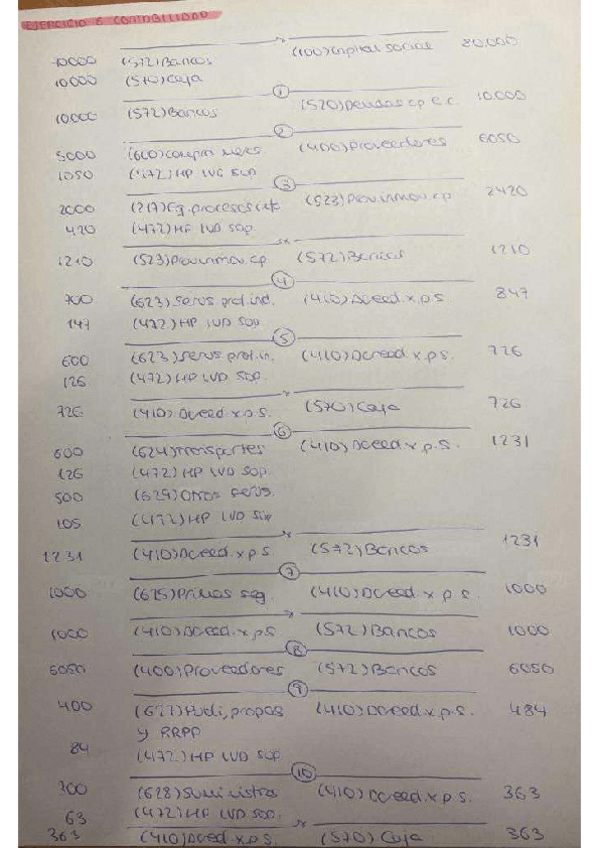 EJERCICIO 6 CONTABILIDAD
x
10000 (572) Bancos (100) Capital social 20.000
10000 (570) Caja
1
10000 (572) Bancos (520) Deudas cp e.c. 10.000
2
5000 (600) Compra merc. (400) Proveedores 6050
1050 (472) HP IVA sop
3
2000 (217) Eq. procesos inf. (523) Prov. inmov. cp 2420
420 (472) HP IVA sop.
x
1210 (523) Prov. inmov. cp (572) Bancos 1210
4
700 (623) Servs prof. ind. (410) Acreed. x p.s 847
147 (472) HP IVA sop.
5
600 (623) Servs prof. in. (410) Acreed. x p.s. 726
126 (472) HP IVA sop.
x
726 (410) Acreed. x p.s. (570) Caja 726
6
600 (624) Transportes (410) Acreed. x p.s. 1231
126 (472) HP IVA sop.
500 (629) Otros servs.
105 (472) HP IVA sop
x
1231 (410) Acreed. x p.s (572) Bancos 1231
7
1000 (625) Primas seg. (410) Acreed x p.s 1000
x
1000 (410) Acreed. x p.s (572) Bancos 1000
8
6050 (400) Proveedores (572) Bancos 6050
9
400 (627) Publi, propag (410) Acreed. x p.s. 484
y RRPP
84 (472) HP IVA sop
10
300 (628) Suministros (410) Acreed. x p.s. 363
63 (472) HP IVA sop.
x
363 (410) Acreed. x p.s. (570) Caja 363